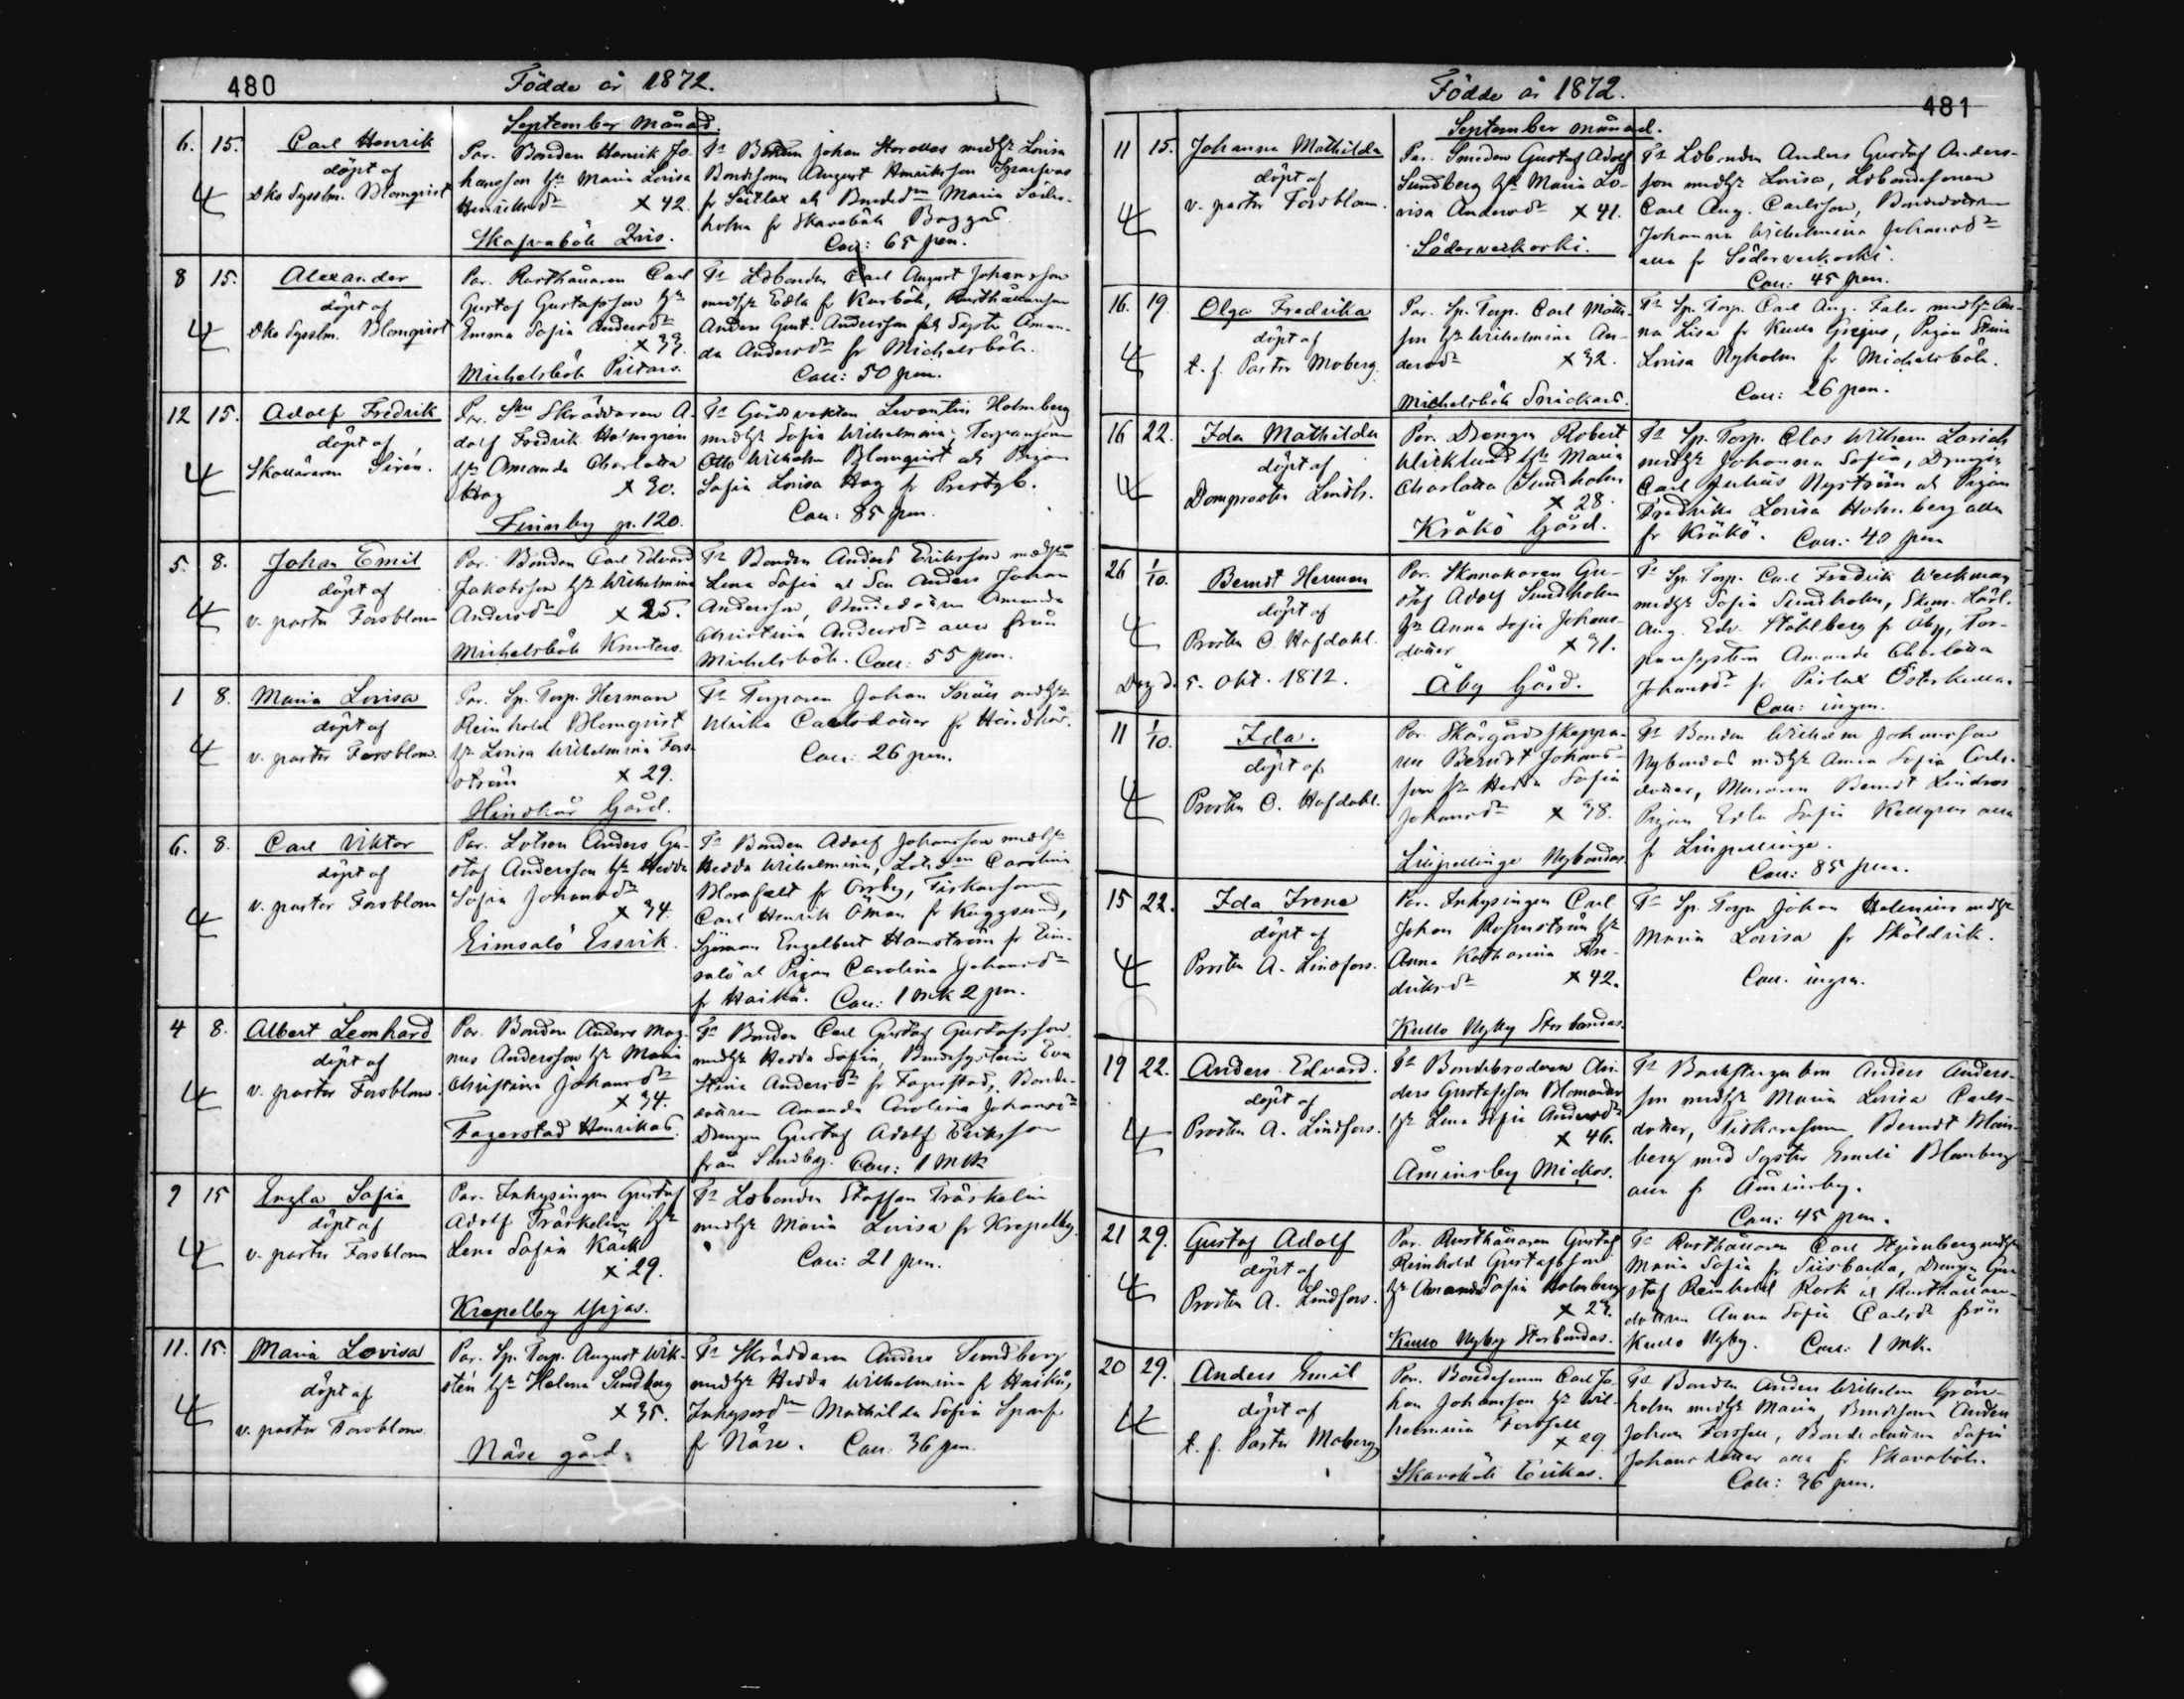 480
Födde år 1872.
September månad.
6. 15. Carl Henrik
döpt af
Dko Sysslm. Blomqvist
Par. Bonden Henrik Jo-
hansson h. Maria Lovisa
Henriksdr x 42.
Skafvaböle Zris.
Ft Bonden Johan med h. Lovisa
Bondesonen August Henriksson
fr ak Bondedn Maria Söder-
holm fr Skavaböle Baggas
Coll: 65 pen.
8 15. Alexander
döpt af
Dko Sysslm. Blomqvist
Par. Rusthållaren Carl
Gustaf Gustafsson h.
Emma Sofia Andersdr
x 33.
Michelsböle Pildars.
Ft Ldbonden Carl August Johansson
med h. Edla fr Karböle,
Anders Gust. Andersson Syster Aman-
da Andersdr fr Michelsböle.
Coll: 50 pen.
12 15. Adolf Fredrik
döpt af
Skolläraren Sirén.
Par. Skrädaren A-
dolf Fredrik Holmgren
h. Amanda Charlotta
Hag x 30.
Finnby gr. 120.
Ft Gårdsvakten Levantin Holmberg
med h. Sofia Wilhelmina, Torparesonen
Otto Wilhelm Blomqvist ak Pigan
Sofia Lovisa Hag fr Prestgb.
Coll: 85 pen.
5. 8. Johan Emil
döpt af
v. pastor Forsblom
Par. Bonden Carl Edvard
Jakobsson h. Wilhelmina
Andersdr x 25.
Michelsböle Knuters.
Ft Bonden Anders Eriksson med h.
Lena Sofia ak Son Anders Johan
Andersson, Amanda
Christina Andersdr alla från
Michelsböle. Coll: 55 pen.
1 8. Maria Lovisa
döpt af
v. pastor Forsblom.
Par. Sp. Torp. Herman
Reinhold Blomqvist
h. Lovisa Wilhelmina Fors-
ström x 29.
Hindhår Gård.
Ft Torparen Johan med h.
Ulrika Carlsdotter fr Hindhår.
Coll: 26 pen.
6. 8. Carl Viktor
döpt af
v. pastor Forsblom
Par. Lotsen Anders Gu-
staf Andersson h. Hedda
Sofia Johansdr
x 34.
Eimsalö Essvik.
Ft Bonden Adolf Johansson med h.
Hedda Wilhelmina, Carolina
fr Orrby, Fiskaresonen
Carl Henrik Öman fr Kuggsund,
Sjöman Engelbert Hamström fr Eim-
salö ak Pigan Carolina Johansdr
fr Haikå. Coll: 1 mk 2 pen.
4 8. Albert Leonhard
döpt af
v. pastor Forsblom.
Par. Bonden Anders Mag-
nus Andersson h. Maria
Christina Johansdr
x 34.
Fagerstad Henrikas.
Ft Bonden Carl Gustaf Gustafsson
med h. Hedda Sofia, Bondesystern Eva
Stina Andersdr fr Fagerstad, Bonde-
dottren Amanda Carolina Johansdr
Drengen Gustaf Adolf Eriksson
från Sondby. Coll: 1 Mk
9 15 Engla Sofia
döpt af
v. pastor Forsblom
Par. Inhysingen Gustaf
Adolf Träskelin h.
Lena Sofia Käck
x 29.
Krepelby Yrjas.
Ft Ldbonden Staffan Träskelin
med h. Maria Lovisa fr Krepelby.
Coll: 21 pen.
11. 15. Maria Lovisa
döpt af
v. pastor Forsblom
Par. Sp. Torp. August Wik-
stén h. Helena Sundberg
x 35.
Näse gård.
Ft Skräddaren Anders Sundberg
med h. Hedda Wilhelmina fr Haikå,
Mathilda Sofia Sparf
fr Näse. Coll: 36 pen.
481
Födde år 1872.
September månad.
11 15. Johanna Mathilda
döpt af
v. pastor Forsblom.
Par. Smeden Gustaf Adolf
Sundberg h. Maria Lo-
visa Andersdr x 41.
Söderveckoski.
Ft Ldbonden Anders Gustaf Anders-
son med h. Lovisa, Ldbondesonen
Carl Aug. Carlsson, Bondedottren
Johanna Wilhelmina Johansdr
alla fr Söderveckoski.
Coll: 45 pen.
16. 19. Olga Fredrika
döpt af
t. f. Pastor Moberg.
Par. Sp. Torp. Carl Matts-
son h. Wilhelmina An-
dersdr x 32.
Michelsböle Snickars.
Ft Sp. Torp. Carl Aug. Faler med h. An-
na Lisa fr Kullo Grejus, Pigan Stina
Lovisa Nyholm fr Michelsböle.
Coll: 26 pen.
16 22. Ida Mathilda
döpt af
Domprosten Lindh.
Par. Drengen Robert
Wicklund h. Maria
Charlotta Sundholm
x 28.
Kråkö Gård.
Ft Sp. Torp. Clas Wilhelm Lorich
med h. Johanna Sofia, Drengen
Carl Julius Nyström ak Pigan
Fredrika Lovisa Holmberg alla
fr Kråkö. Coll: 40 pen
26 1/10. Berndt Herman
döpt af
Prosten C. Hofdahl.
Döp d. 5. Okt. 1872.
Par. Skomakaren Gu-
staf Adolf Sundholm
h. Anna Sofia Johans-
dotter x 31.
Åby Gård.
Ft Sp. Torp. Carl Fredrik Weckman
med h. Sofia Sundholm, Skom. Lärl.
Aug. Edv. Ståhlberg fr Åby, Tor-
paresystern Amanda Charlotta
Johansdr fr Pirlax Österkulla.
Coll: ingen.
11 1/10. Ida.
döpt af
Prosten C. Hofdahl.
Par. Skärgårdsskeppa-
ren Berndt Johans-
son h. Hedda Sofia
Johansdr x 38.
Liljpellinge Nybondas.
Ft Bonden Wilhelm Johansson
Nybondas med h. Anna Sofia Carls-
dotter, Berndt Lindroos
Pigan Edla Sofia Kellgren alla
fr Liljpellinge.
Coll: 85 pen.
15 22. Ida Irene
döpt af
Prosten A. Lindfors.
Par. Inhysingen Carl
Johan h.
Anna Katharina Fre-
driksdr x 42.
Kullo Nyby Storbondas.
Ft Sp. Torp. Johan Helenius med h.
Maria Lovisa fr Sköldvik.
Coll. ingen.
19 22. Anders Edvard.
döpt af
Prosten A. Lindfors.
Ft Bondebrodern An-
ders Gustafsson Blomander
h. Lena Sofia Andersdr
x 46.
Åminsby Mickos.
Ft Backstugubon Anders Anders-
son med h. Maria Lovisa Carls-
dotter, Fiskaresonen Berndt Blom-
berg med Syster Emili Blomberg
alla fr Åminsby.
Coll: 45 pen.
21 29. Gustaf Adolf
döpt af
Prosten A. Lindfors.
Par. Rusthållaren Gustaf
Reinhold Gustafsson
h. Amanda Sofia Holmberg
x 23.
Kullo Nyby Storbondas.
Ft Rusthållaren Carl Stjernberg med h.
Maria Sofia fr Siisbacka, Drengen Gu-
staf Reinhold Rask ak Rusthållare-
dottren Anna Sofia Carlsdr från
Kullo Nyby. Coll: 1 Mk.
20 29. Anders Emil
döpt af
t. f. Pastor Moberg
Par. Bondesonen Carl Jo-
han Johansson h. Wil-
helmina Forssell
x 29.
Skavaböle Erikas.
Ft Bonden Anders Wilhelm Grön-
holm med h. Maria, Bondesonen Anders
Johan Forssell, Bondedottren Sofia
Johansdotter alla fr Skavaböle.
Coll: 36 pen.